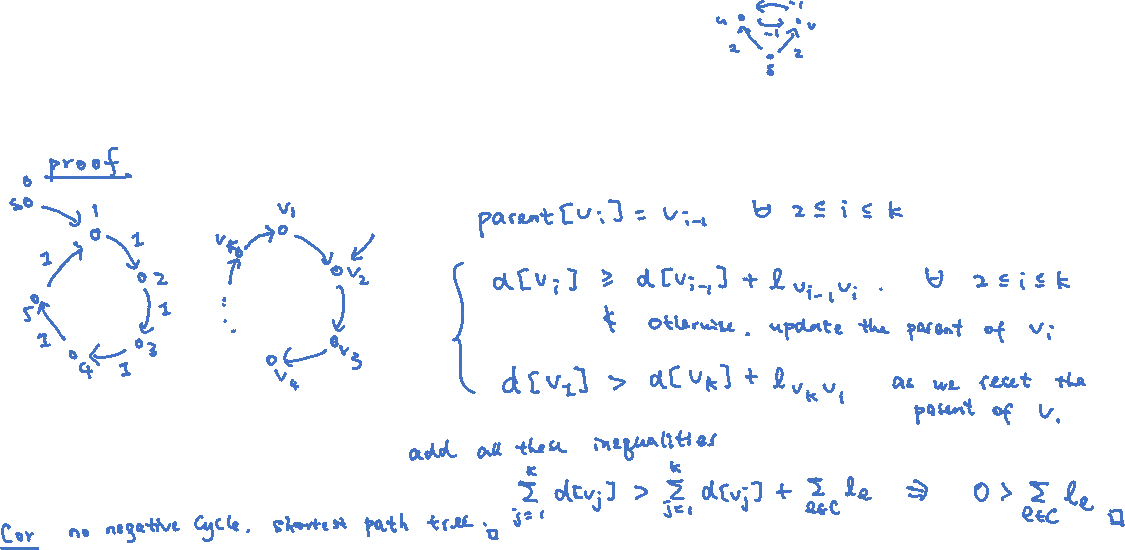 -1
u v
-1
2 2
s
proof
0
s 1
1 1
2
5 1
1 3
4 1
v₁
vₖ v₂
v₃
v₄
parent[vᵢ] = vᵢ₋₁ ∀ 2 ≤ i ≤ k
d[vᵢ] ≥ d[vᵢ₋₁] + l_{vᵢ₋₁vᵢ} . ∀ 2 ≤ i ≤ k
otherwise, update the parent of vᵢ
d[v₁] > d[vₖ] + l_{vₖv₁} as we reset the
parent of v₁
add all these inequalities
∑_{j=1}^{k} d[vⱼ] > ∑_{j=1}^{k} d[vⱼ] + ∑_{e∈C} lₑ ⇒ 0 > ∑_{e∈C} lₑ □
Cor no negative cycle, shortest path tree. □